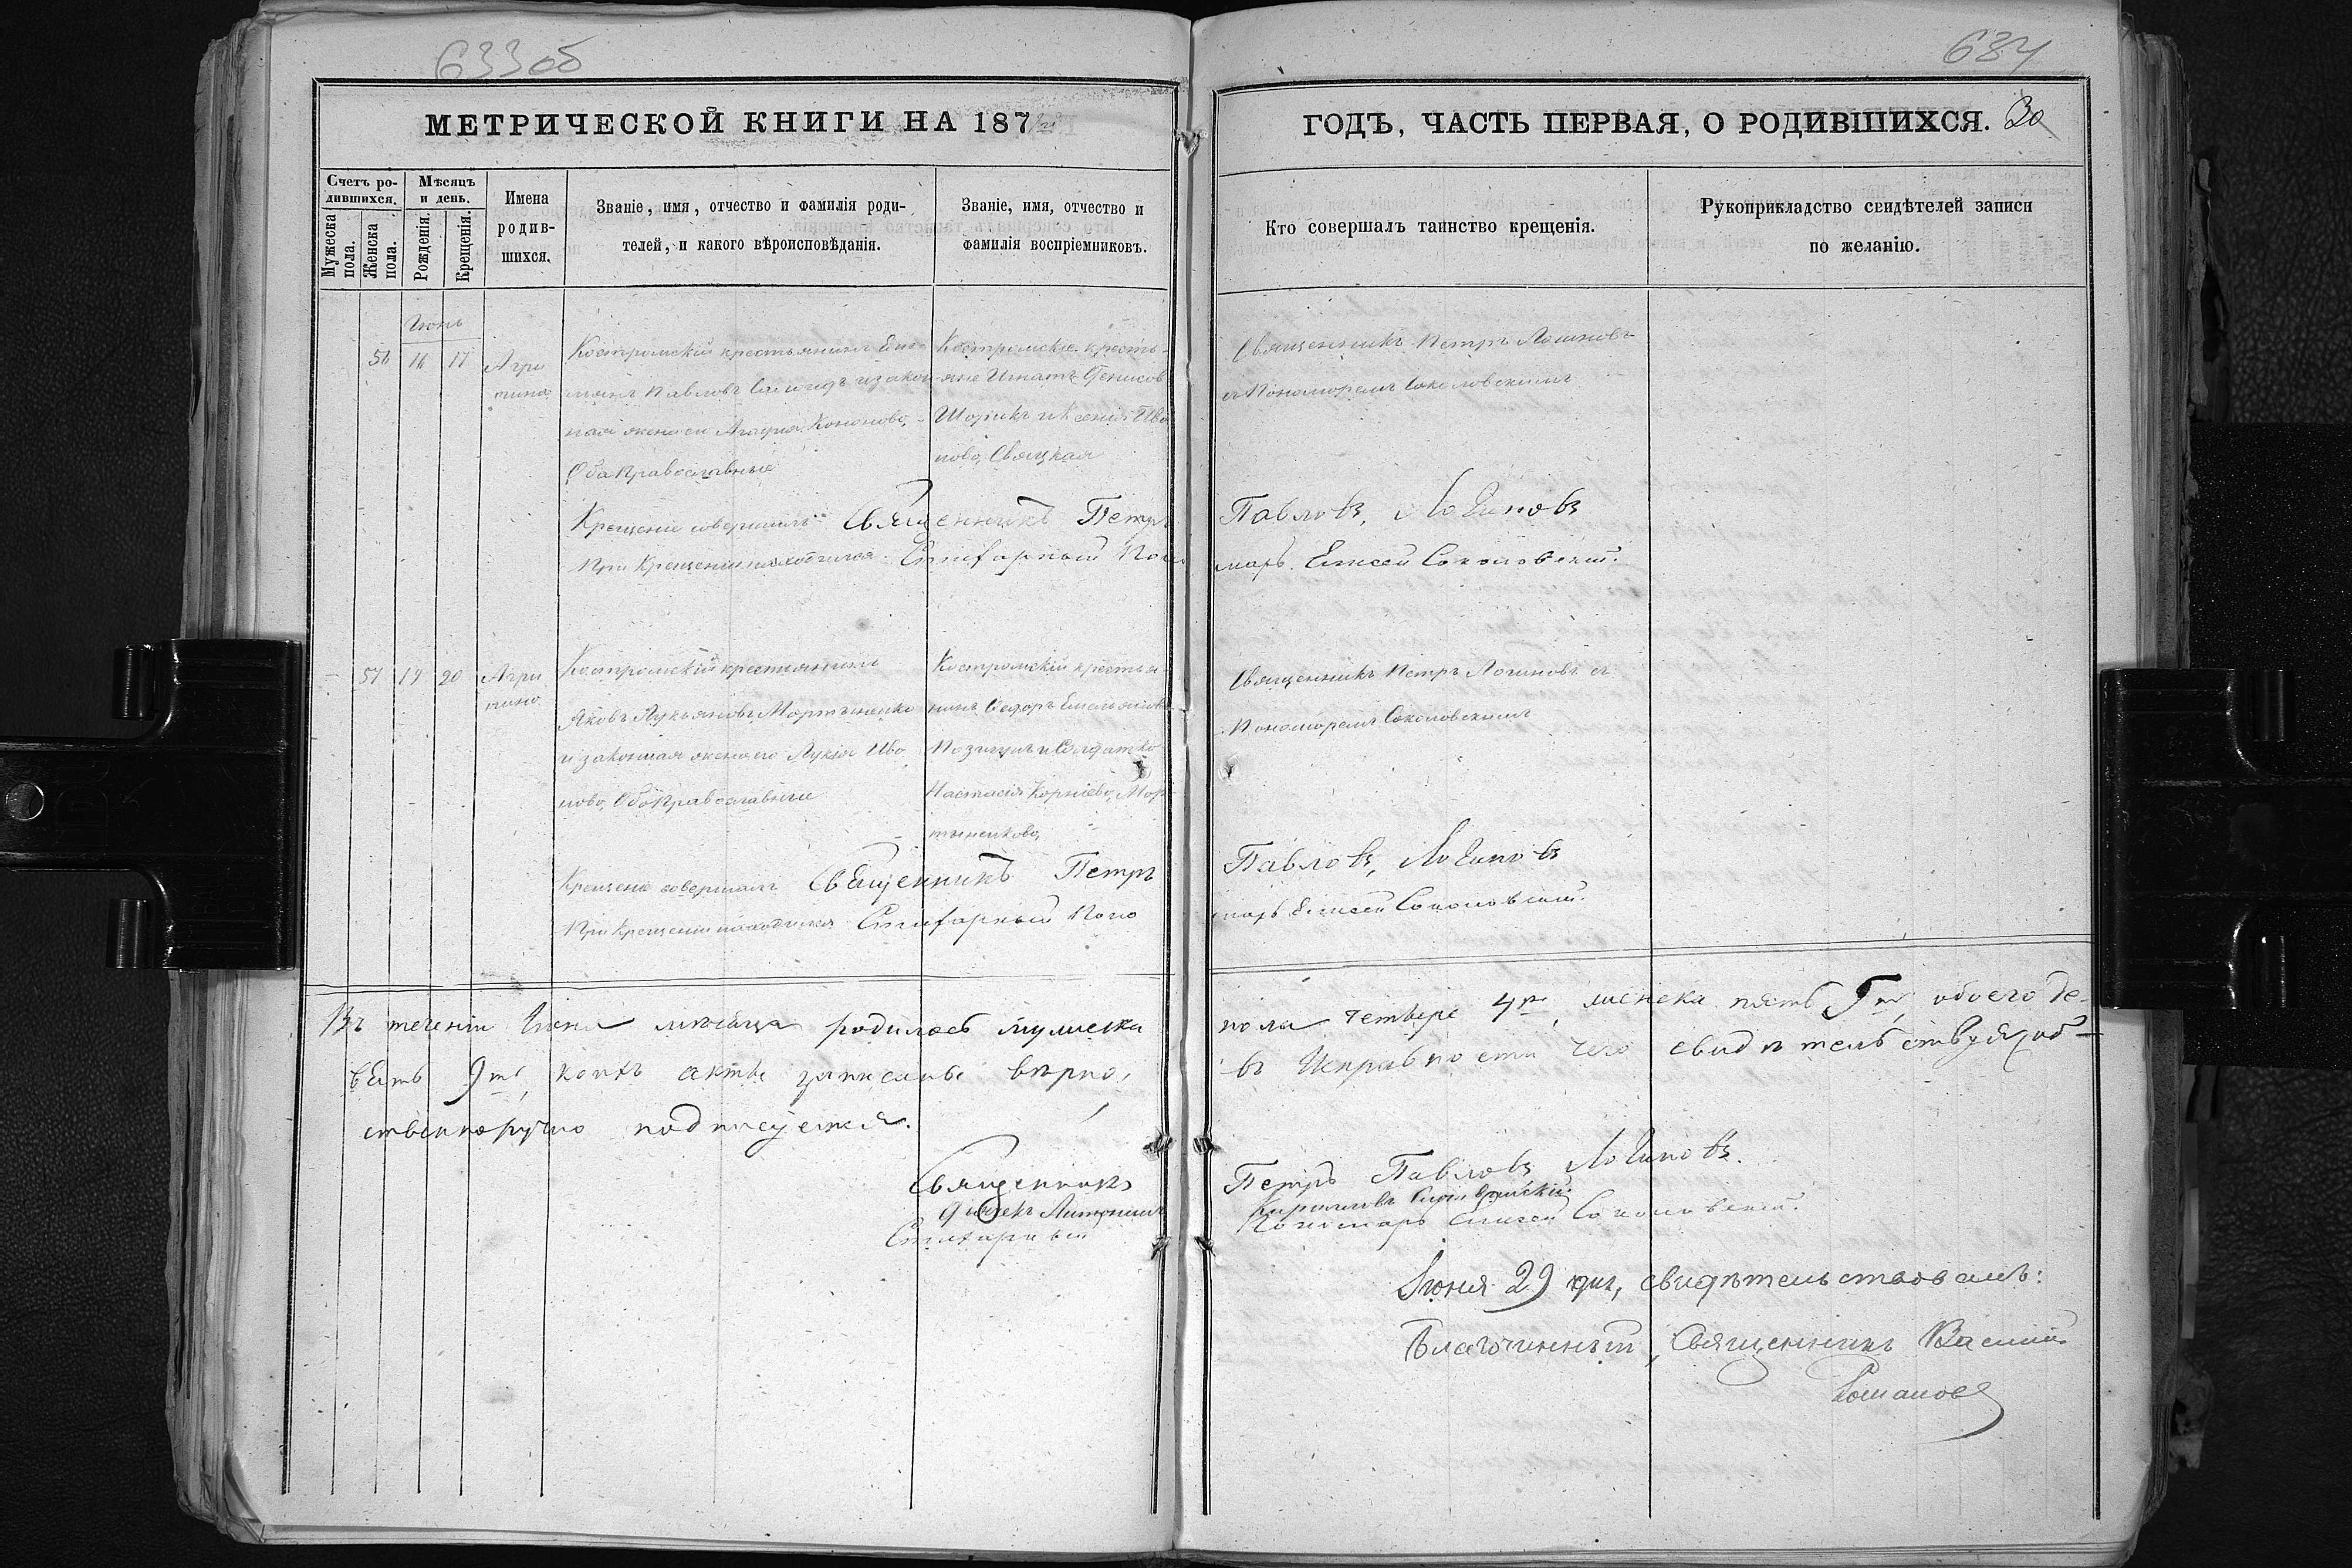 633об
634
МЕТРИЧЕСКОЙ КНИГИ НА 187
ГОДЪ, ЧАСТЬ ПЕРВАЯ, О РОДИВШИХСЯ. 30
Счетъ родившихся.
Мужеска пола.
Женска пола.
Мѣсяцъ и день.
Рожденія.
Крещенія.
Имена
родив-
шихся.
Званіе, имя, отчество и фамилія роди-
телей, и какого вѣроисповѣданія.
Званіе, имя, отчество и
фамилія воспріемниковъ.
Кто совершалъ таинство крещенія.
Рукоприкладство свидѣтелей записи
по желанію.
Іюнь
56 16 17
Агри
пина
Костромскій крестьянинъ Еме-
льянъ Павловъ и закон
ная жена его Агафія Кононова,
Оба Православные
Костромскіе кресть-
яне Игнатъ Денисов
Шорикъ и Ксенія Ива
нова, Свяцкая
Священникъ Петръ Логиновъ
съ Пономоремъ Соколовскимъ
Крещеніе совершилъ Священникъ Петръ Павловъ, Логиновъ
При Крещеніи находился Стихарный Поно марь Елисей Соколовский.
57 19 20
Агри
пина
Костромскій крестьянинъ
Яковъ Лукьяновъ Мортыненко
и законная жена его Лукія Ива
нова, Оба Православные
Костромскій крестья-
нинъ Ѳедоръ Емельяновъ
и Солдатка
Настасія Корніева, Мор
тыненкова,
Священникъ Петръ Логиновъ съ
Пономоремъ Соколовскимъ
Крещеніе совершилъ Священникъ Петръ Павловъ, Логиновъ
При Крещеніи находился Стихарный Поно марь Елисей Соколовский.
Въ теченіи Іюня мѣсяца родилось мужеска пола четыре 4ре, женска пять 5ть, обоего де-
вять 9ть, коихъ акты записаны вѣрно, въ Исправности чего свидѣтельствуя, соб-
ственноручно подписуемся.
Священникъ Петръ Павловъ Логиновъ.
Дьячекъ
Стихарный Пономарь Елисей Соколовский.
Іюня 29 дня, свидѣтельствовалъ:
Благочинный, Священникъ Василій
Романовъ